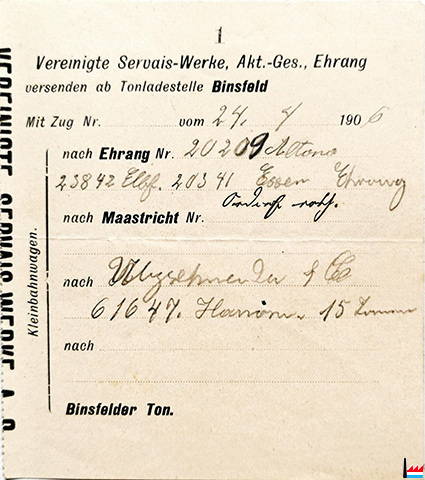 1
Vereinigte Servais-Werke, Akt.-Ges., Ehrang
versenden ab Tonladestelle Binsfeld
Mit Zug Nr. vom 24. 4 1906
nach Ehrang Nr. 20209 Altona
23842 Elbf. 20341 Essen Ehrang
nach Maastricht Nr.
nach & Co
61647. Hannov. 15 Tonnen
nach
Binsfelder Ton.
Kleinbahnwagen.
VEREINIGTE SERVAIS-WERKE A. G.